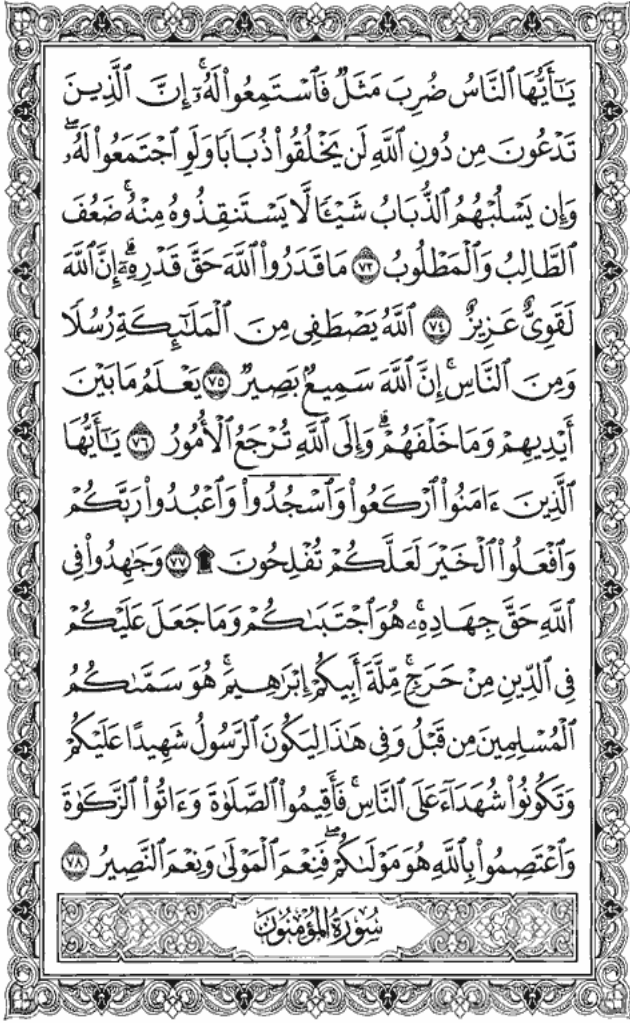 يَـٰٓأَيُّهَا ٱلنَّاسُ ضُرِبَ مَثَلٌ فَٱسْتَمِعُوا۟ لَهُۥٓ ۚ إِنَّ ٱلَّذِينَ
تَدْعُونَ مِن دُونِ ٱللَّهِ لَن يَخْلُقُوا۟ ذُبَابًا وَلَوِ ٱجْتَمَعُوا۟ لَهُۥ ۖ
وَإِن يَسْلُبْهُمُ ٱلذُّبَابُ شَيْـًٔا لَّا يَسْتَنقِذُوهُ مِنْهُ ۚ ضَعُفَ
ٱلطَّالِبُ وَٱلْمَطْلُوبُ ٧٣ مَا قَدَرُوا۟ ٱللَّهَ حَقَّ قَدْرِهِۦٓ ۗ إِنَّ ٱللَّهَ
لَقَوِىٌّ عَزِيزٌ ٧٤ ٱللَّهُ يَصْطَفِى مِنَ ٱلْمَلَـٰٓئِكَةِ رُسُلًا
وَمِنَ ٱلنَّاسِ ۚ إِنَّ ٱللَّهَ سَمِيعٌۢ بَصِيرٌ ٧٥ يَعْلَمُ مَا بَيْنَ
أَيْدِيهِمْ وَمَا خَلْفَهُمْ ۗ وَإِلَى ٱللَّهِ تُرْجَعُ ٱلْأُمُورُ ٧٦ يَـٰٓأَيُّهَا
ٱلَّذِينَ ءَامَنُوا۟ ٱرْكَعُوا۟ وَٱسْجُدُوا۟ وَٱعْبُدُوا۟ رَبَّكُمْ
وَٱفْعَلُوا۟ ٱلْخَيْرَ لَعَلَّكُمْ تُفْلِحُونَ ۩ ٧٧ وَجَـٰهِدُوا۟ فِى
ٱللَّهِ حَقَّ جِهَادِهِۦ ۚ هُوَ ٱجْتَبَىٰكُمْ وَمَا جَعَلَ عَلَيْكُمْ
فِى ٱلدِّينِ مِنْ حَرَجٍ ۚ مِّلَّةَ أَبِيكُمْ إِبْرَٰهِيمَ ۚ هُوَ سَمَّىٰكُمُ
ٱلْمُسْلِمِينَ مِن قَبْلُ وَفِى هَـٰذَا لِيَكُونَ ٱلرَّسُولُ شَهِيدًا عَلَيْكُمْ
وَتَكُونُوا۟ شُهَدَآءَ عَلَى ٱلنَّاسِ ۚ فَأَقِيمُوا۟ ٱلصَّلَوٰةَ وَءَاتُوا۟ ٱلزَّكَوٰةَ
وَٱعْتَصِمُوا۟ بِٱللَّهِ هُوَ مَوْلَىٰكُمْ ۖ فَنِعْمَ ٱلْمَوْلَىٰ وَنِعْمَ ٱلنَّصِيرُ ٧٨
سُورَةُ المُؤْمِنُون